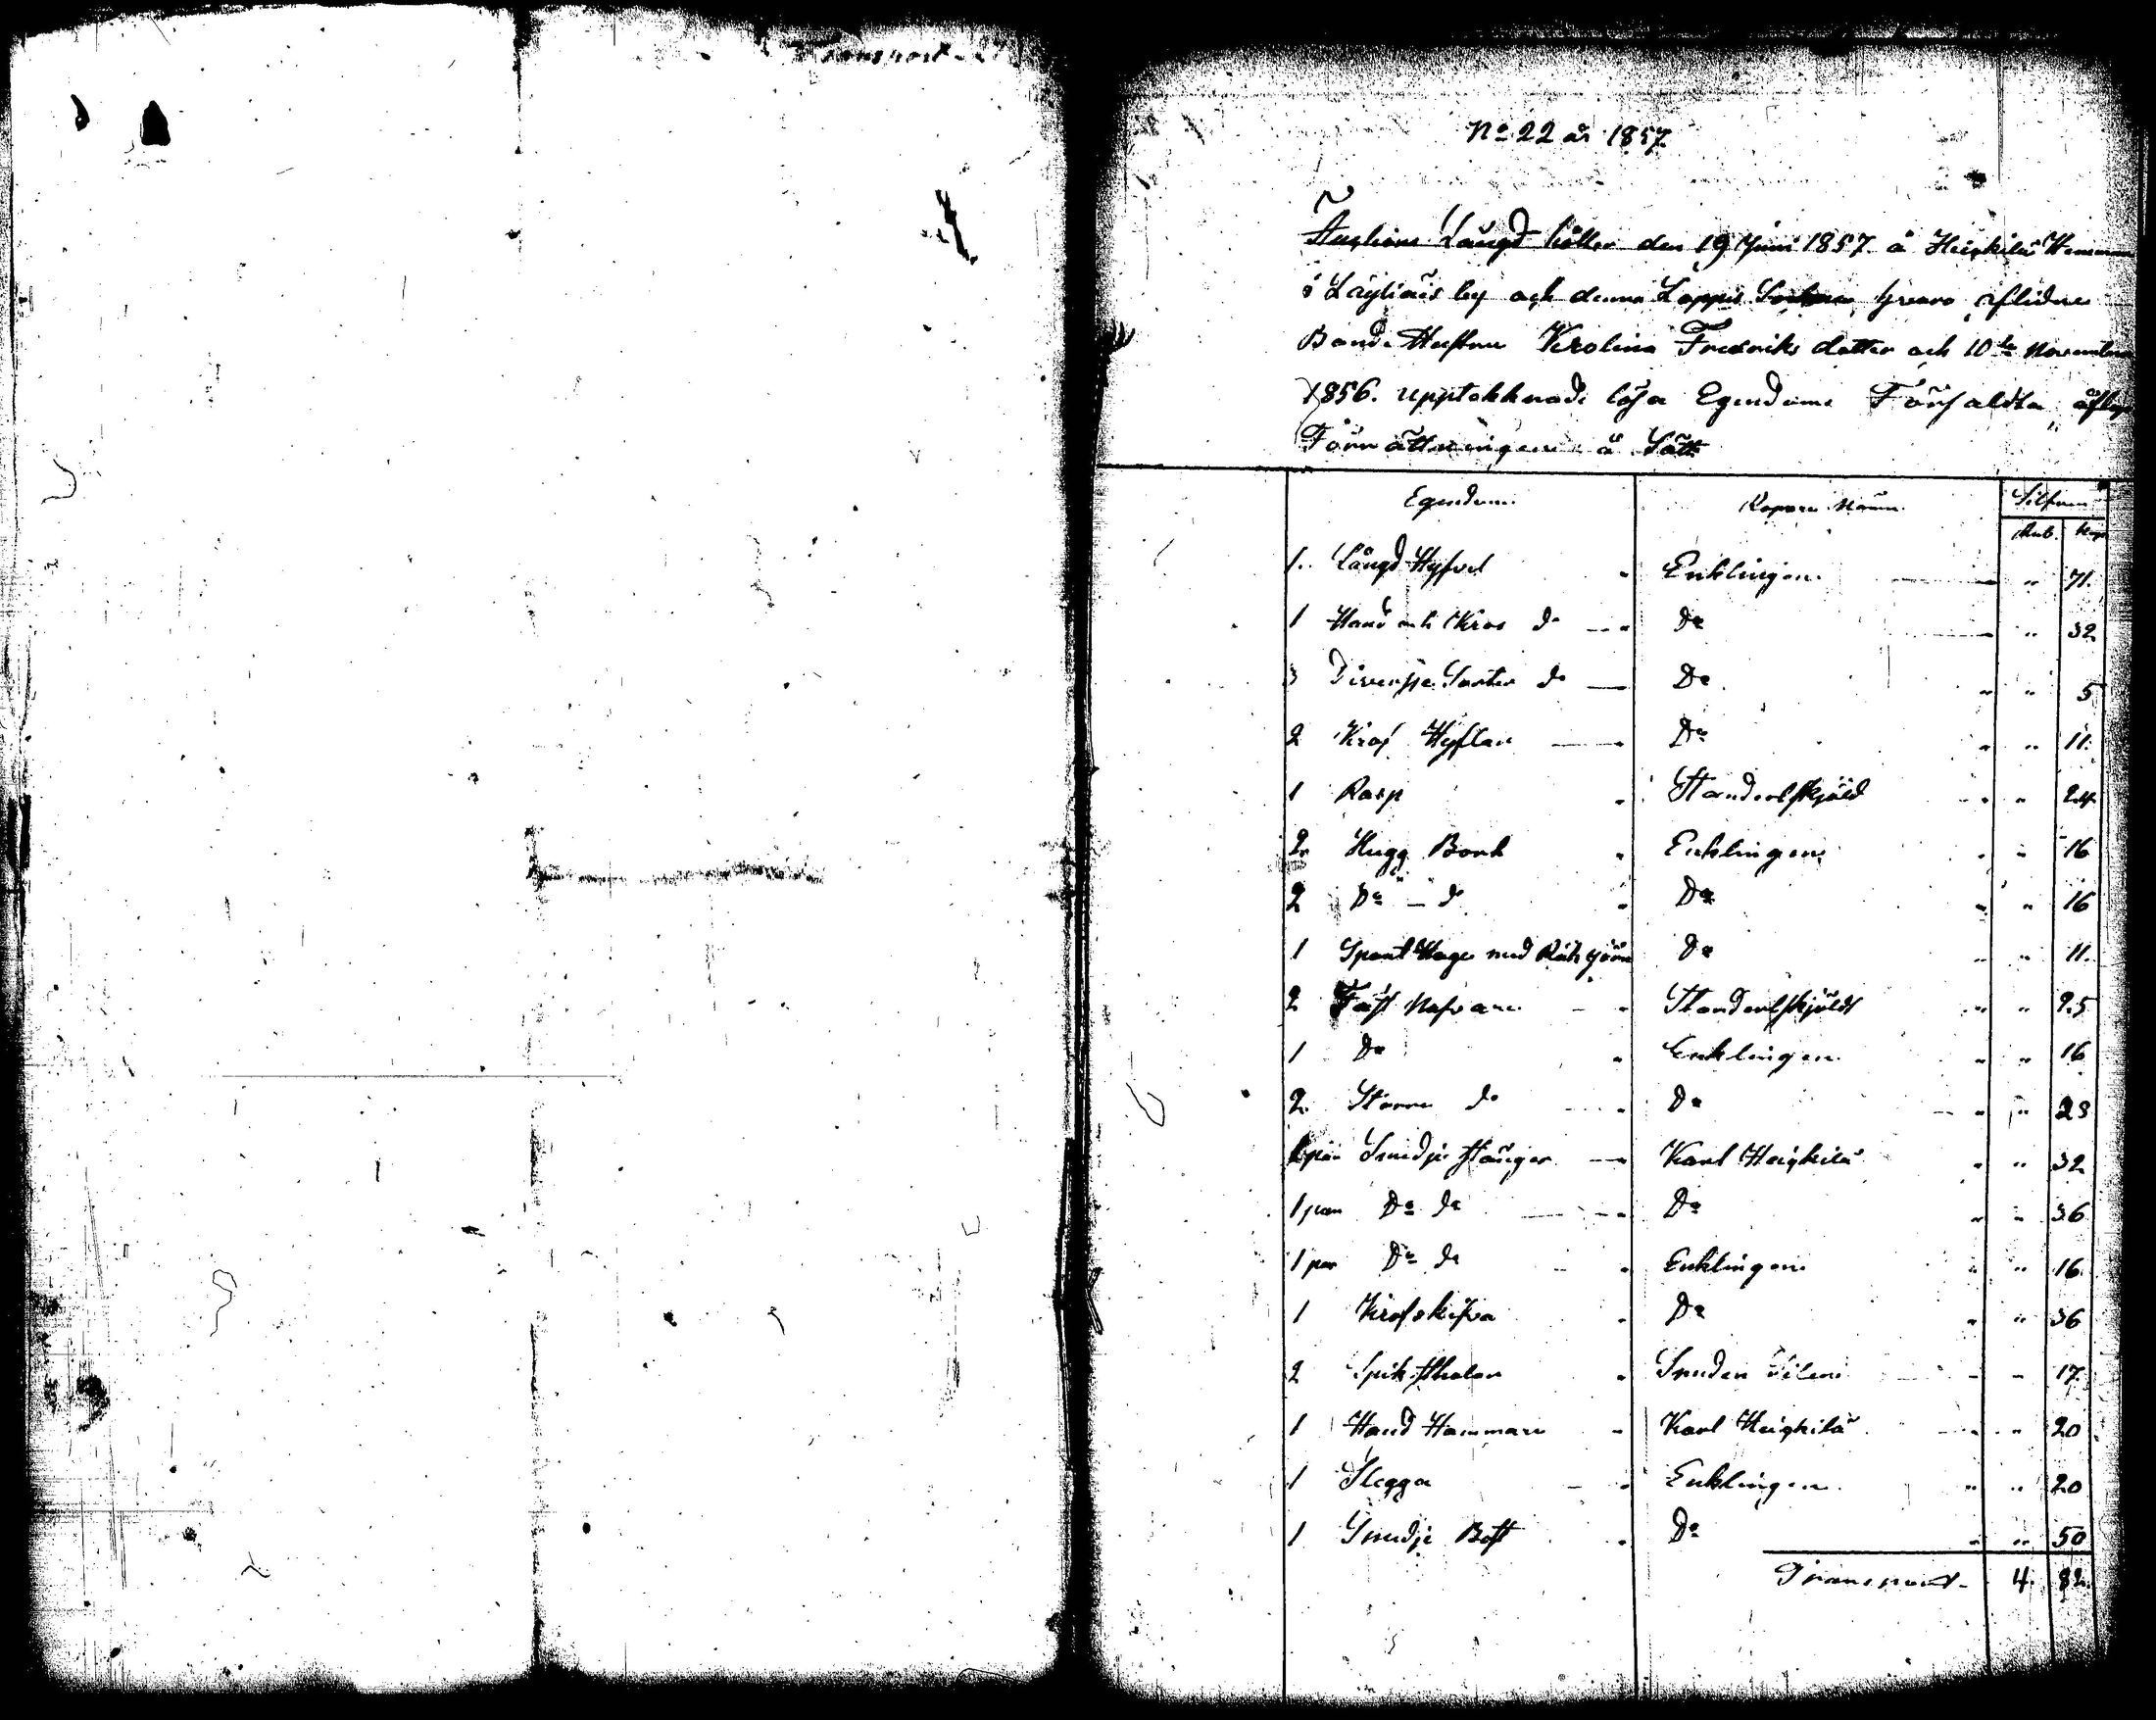 Transport
No 22 år 1857.
Auktions Längd hållen den 19 Juni 1857 å Heikkilä Hemman
i Läyliäis by och denna Loppis Socken hvarvid aflidne
Bonde Hustrun Karolina Fredriks dotter och 10de November
1856. upptekknade lösa Egendom Försåldta, aflopp
Förrättningen å Sätt
Egendom Köpare Namn Silfver
Rub. Kop
1 Långd Hyfvel " Enklingen " 71.
1 Hand och Kros do " Do " 32
3 Diversse Sorter do Do " " 5
2 Kros Hyflar " Do " " 11.
1 Rasp " Standertskjöld " " 24
2 Hugg Bank " Enklingen " " 16
2 Do - do " Do " " 16
1 Spant Hage med Do " " 11.
2 Fast Nafvare " Standertskjöld " " 25
1 Do " Enklingen " " 16
2 Större do " Do " " 23
1 par Smidje Tänger " Karl Heikkilä " " 32
1 par Do do " Do " " 36
1 par Do do " Enklingen " " 16
1 Krosskifva " Do " " 36
2 Spik " Smeden - - 17
1 Hand Hammare " Karl Heikkilä " " 20
1 Slegga " Enklingen " " 20
1 Smidje " Do " " 50
Transport 4 82.